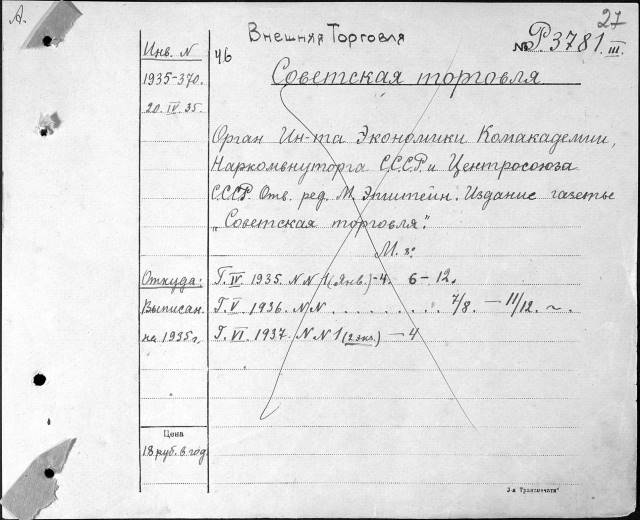 А.
27
Внешняя Торговля
№ Р.3781.III.
Инв. N
46
1935-370.
Советская торговля
20.IV.35.
Орган Ин-та Экономики Комакадемии,
Наркомвнуторга С.С.С.Р. и Центросоюза
С.С.С.Р. Отв. ред. М. Эпштейн. Издание газеты
„Советская торговля".
М. 8°.
Откуда: Г. IV. 1935. N N 1 (янв.) - 4. 6 - 12.
Выписан. Г. V. 1936. N N . . . . . . . . 7/8. — 11/12. ~.
на 1935 г. Г. VI. 1937. N N 1 (2 экз.) — 4
Цена
18 руб. в год.
3-я Трансмечати"